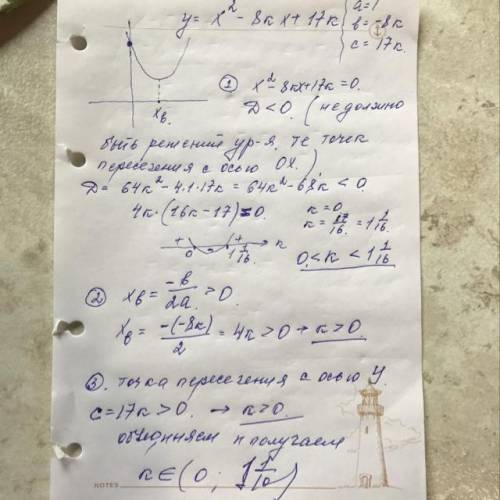 y = x² - 8кx + 17к
a = 1
b = -8к
c = 17к.
xв.
① x² - 8кx + 17к = 0.
D < 0. (не должно
быть решений ур-я, те точек
пересечения с осью OX.)
D = 64к² - 4·1·17к = 64к² - 68к < 0
4к·(16к - 17) = 0.
к = 0
к = 17/16 = 1 1/16.
+ - + к
0 1 1/16.
0 < к < 1 1/16
② xв = -b/2a > 0.
xв = -(-8к)/2 = 4к > 0 → к > 0.
③. точка пересечения с осью У.
c = 17к > 0. → к > 0.
объединяем и получаем
к ∈ (0 ; 1 1/16)
NOTES